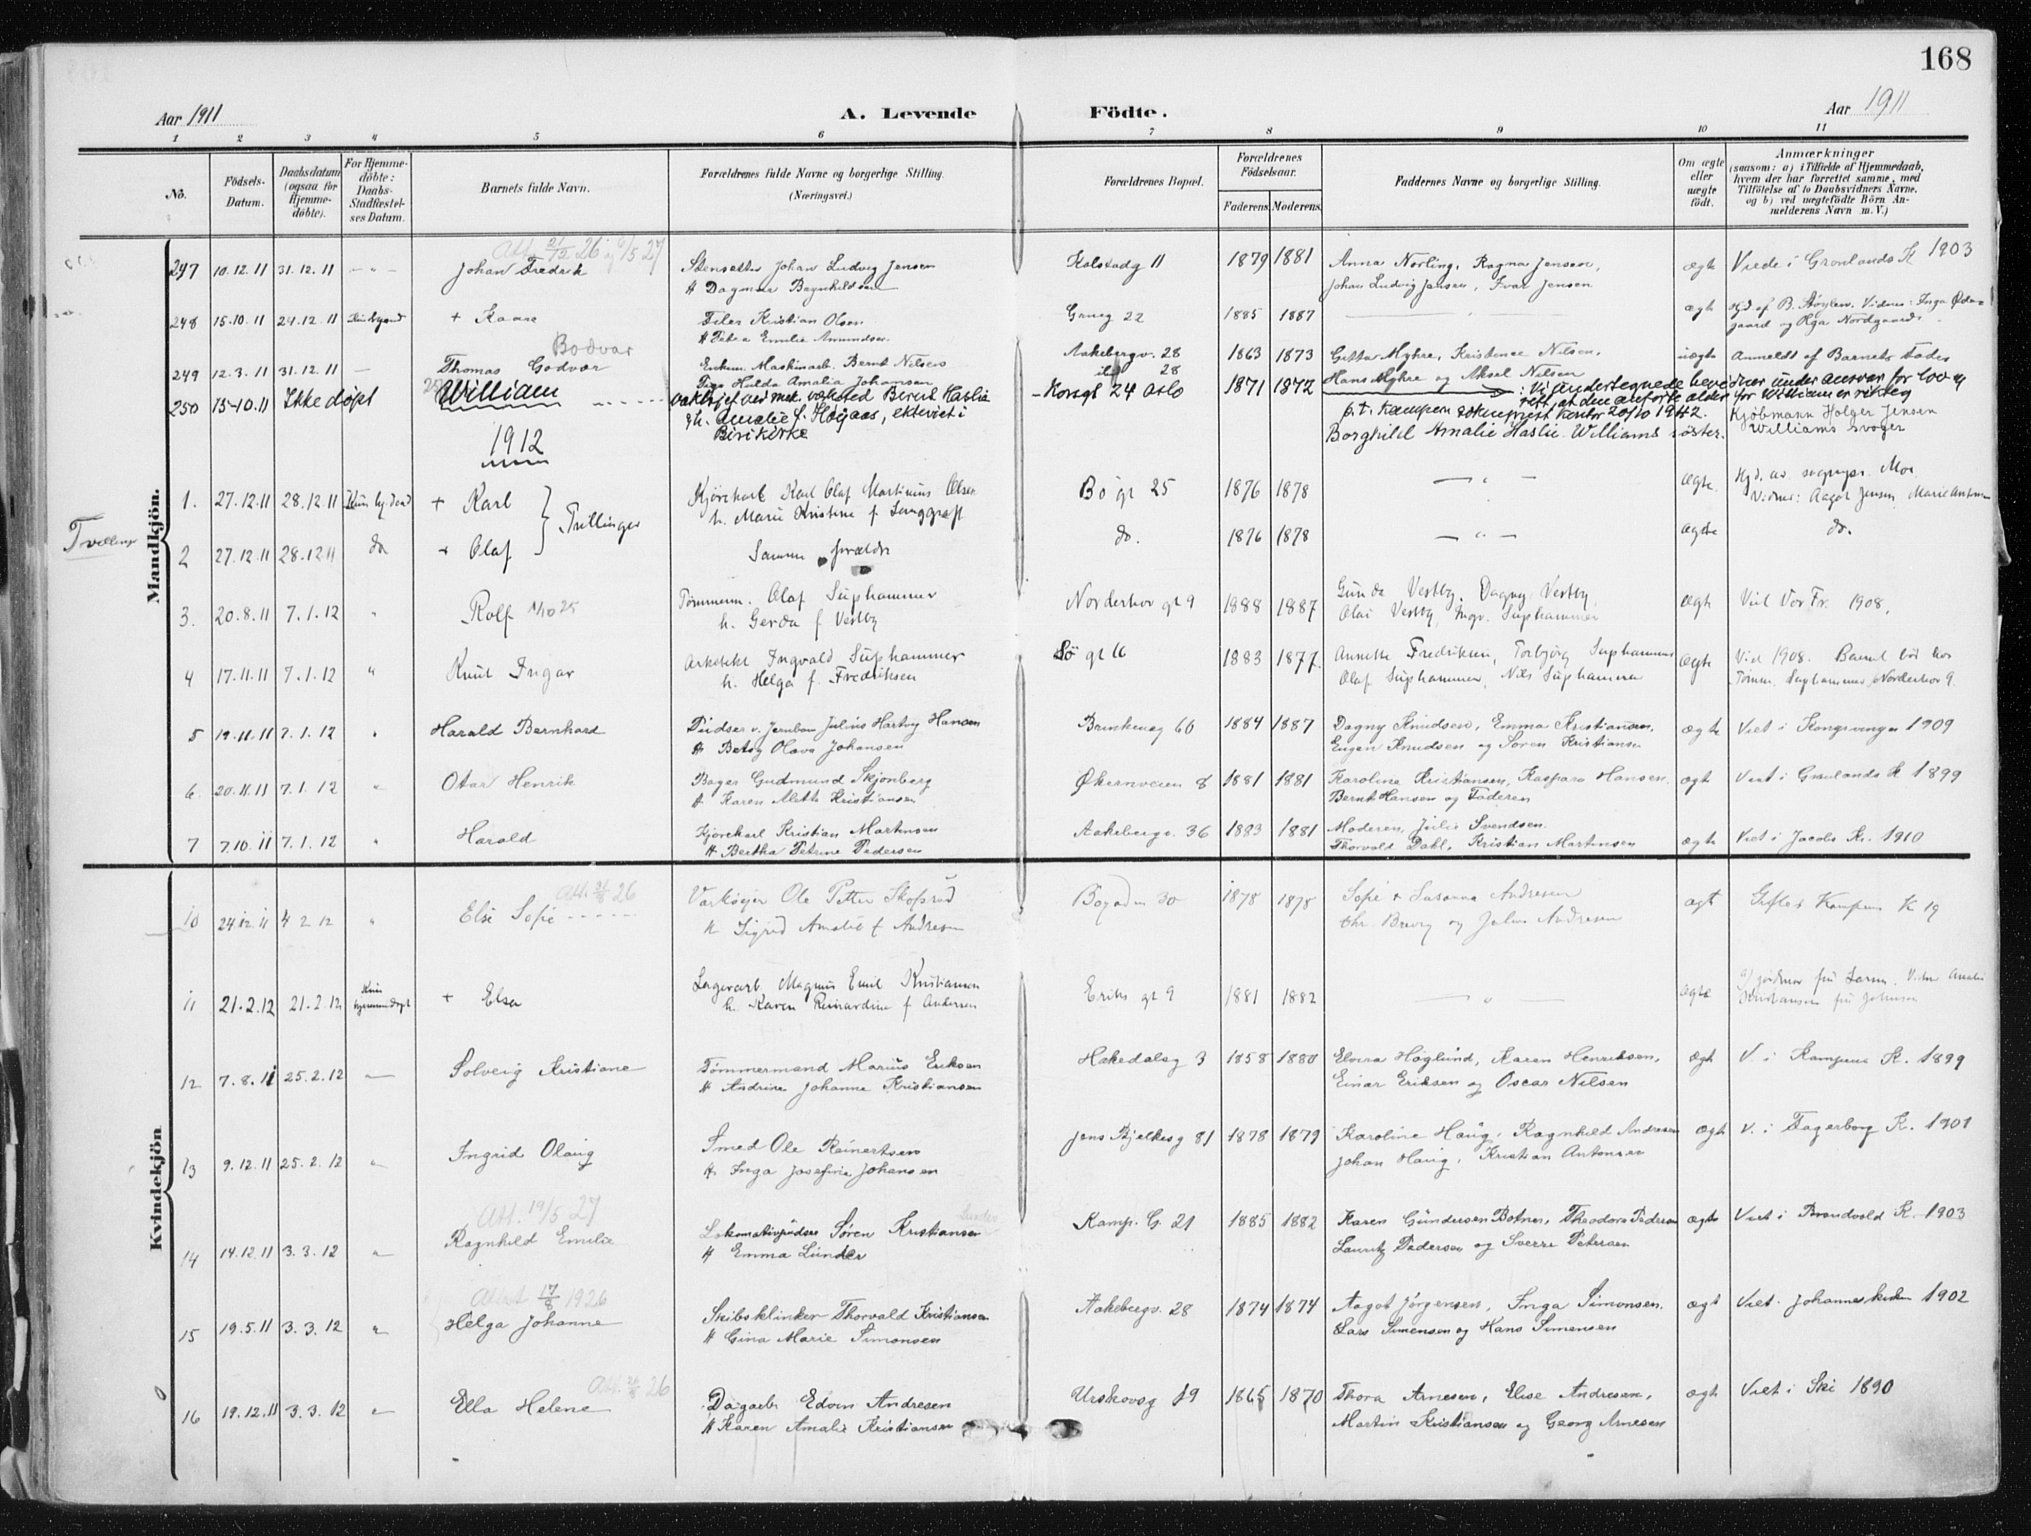 168
Aar 1911
A. Levende Födte.
Aar 1911
1 2 3 4 5 6 7 8 9 10 11
No.
Födsels-Datum.
Daabsdatum (ogsaa for Hjemme-döbte).
For Hjemme-döbte: Daabs-Stadfæstel-ses Datum.
Barnets fulde Navn.
Forældrenes fulde Navne og borgerlige Stilling.
(Næringsvei.)
Forældrenes Bopæl.
Forældrenes Födselsaar.
Faderens. Moderens.
Faddernes Navne og borgerlige Stilling.
Om ægte eller uægte födt.
Anmærkninger
(saasom: a) i Tilfælde af Hjemmedaab, hvem der har forrettet samme, med Tilföielse af to Daabsvidners Navne. og b) ved uægtefödte Börn An-melderens Navn m. V.)
Mandkjön.
247 10.12.11 31.12.11 — " — Johan Fredrik Johan Ludvig Jensen Kolstadg 11 1879 1881 Anna Norling, Ragna Jensen, ægte Viede i Grønlands K 1903
H Dagmar Johan Ludvig Jensen, Ivar Jensen
248 15.10.11 24.12.11 + Kaare Filer Kristian Olsen Grueg 22 1885 1887 — " — ægte Hjd af B. Støylen. Vidner: Inga
H Petra Emilie Amundsen og Olga Nordgaard
Bodvar
249 12.3.11 31.12.11 — Thomas Godvar Maskinarb. Bernt Nilsen Aakebergv. 28 1863 1873 Kristence Nilsen, uægte Anmeldt af Barnets Fader
Hulda Amalia Johansen 28 Hans Myhre og Aksel Nilsen
250 15-10.11 Ikke døpt William ved mek. værksted Bernt Haslie Korsgt 24 Oslo 1871 1872 : Vi undertegnede bevidner under ansvar for lov og
rett, at den anførte alder for William er riktig
h. Amalie f. Høgaas, ektviet i p.t. Kampen sokneprest kontor 20/10 1942. Kjøbmann Holger Jensen
Biri kirke Borghild Amalie Haslie Williams søster. Williams svoger
1912
1. 27.12.11 28.12.11 + Karl Kjørekarl Karl Olaf Martinius Olsen Bøgt 25 1876 1878 — " — ægte Hjd. av sognepr. Moe
Tvillinger h. Marie Kristine f Vidner: Aagot Jensen, Marie
Tvillinger
2 27.12.11 28.12.11 do + Olaf Samme forældre do. 1876 1878 — " — ægte do.
3. 20.8.11 7.1.12 " Rolf 1/10 25 Tømmerm. Olaf Suphammer Norderhovgt 9 1888 1887 Gunda Vestby, Dagny Vestby, ægte Viet Vor Fr. 1908,
h. Gerda f Vestby Olai Vestby, Ingv. Suphammer
4 17.11.11 7.1.12 " Knut Ingar Arkitekt Ingvald Suphammer Bøgt 16 1883 1877. Annette Fredriksen, Torbjørg Suphammer ægte Vid 1908. Barnet bor hos
h. Helga f. Fredriksen Olaf Suphammer, Nils Suphammer Tømm. Suphammer, Norderhov 9.
5 19.11.11 7.1.12 " Harald Bernhard Pudser v. Jernban Julius Hartvig Hansen Brinkenvg 60 1884 1887 Dagny Knudsen, Emma Kristiansen, ægte Viet i Kongsvinger 1909
H Betsy Olava Johansen Eugen Knudsen og Søren Kristiansen
6. 20.11.11 7.1.12 " Otar Henrik Bager Gudmund Skjønberg Økernveien 8 1881 1881 Karoline Kristiansen, Kaspara Hansen, ægte Viet i Grønlands K 1899
H Karen Mette Kristiansen Bernt Hansen og Faderen
7 7.10.11 7.1.12 " Harald Kjørekarl Kristian Martinsen Aakebergv. 36 1883 1881 Moderen, Julie Svendsen. ægte Viet i Jacobs K. 1910
H Bertha Petrine Pedersen Thorvald Dahl, Kristian Martinsen
Kvindekjön
10 24.12.11 4 2.12 " Elsi Sofie Ole Petter 30 1878 1878 Sofie + Susanna Andresen ægt Gifte i Kampens K 19
h Sigrid Amalie f Andresen Chr. og Andresen
11 21.2.12 21.2.12 Kun hjemmedøpt + Elsa Lagerarb Magnus Emil Kristiansen Eriksgt 9 1881 1882 — " — ægte
h. Karen f Andersen
12 7.8.11 25.2.12 — Solveig Kristiane Tømmermand Marius Eriksen Hakedalsg 3 1858 1880 Elvira Høglund, Karen Henriksen, ægt V. i Kampens K. 1899
H Andrine Johanne Kristiansen Einar Eriksen og Oscar Nilsen
13 9.12.11 25.2.12 " Ingrid Olaug Smed Ole Reinertsen Jens Bjelkesg 81 1878 1879 Karoline Haug, Ragnhild Andresen ægt V. i Fagerborg K. 1901
H. Inga Josefine Johansen Johan Haug, Kristian Antonsen
Att. 19/5 27
14 14.12.11 3.3.12 " Ragnhild Emilie Lokomotivpudser Søren Kristiansen Kamp. G. 21 1885 1882 Karen Gundersen Botner, Theodora Pedersen ægte Viet i Brandvold K. 1903
H Emma Lunder Lauritz Pedersen og Sverre Petersen
Attest 17/8 1926
15 19.5.11 3.3.12 " Helga Johanne Skibsklinker Thorvald Kristiansen Aakebergv. 28 1874 1874 Aagot Jørgensen, Inga Simonsen. ægt Viet. Johannes kirken 1902
H Gina Marie Simonsen Lars Simensen og Hans Simensen
16 19.12.11 3.3.12 " Ella Helene Dagarb Edvin Andresen Urskovsg 19 1865 1870 Thora Arnesen, Elise Andresen, ægt Viet i Ski 1890
H Karen Amalie Kristiansen Martin Kristiansen og Georg Arnesen